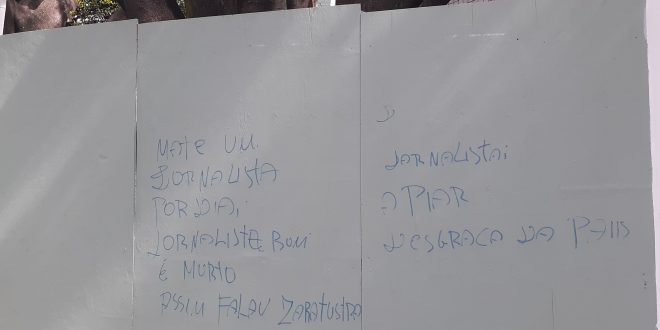 MATE UM
JORNALISTA
POR DIA;
JORNALISTE BOM
É MORTO
ASSIM FALAV ZARATUSTRA
JORNALISTA;
A PIAR
DESGRACA DA PAIIS